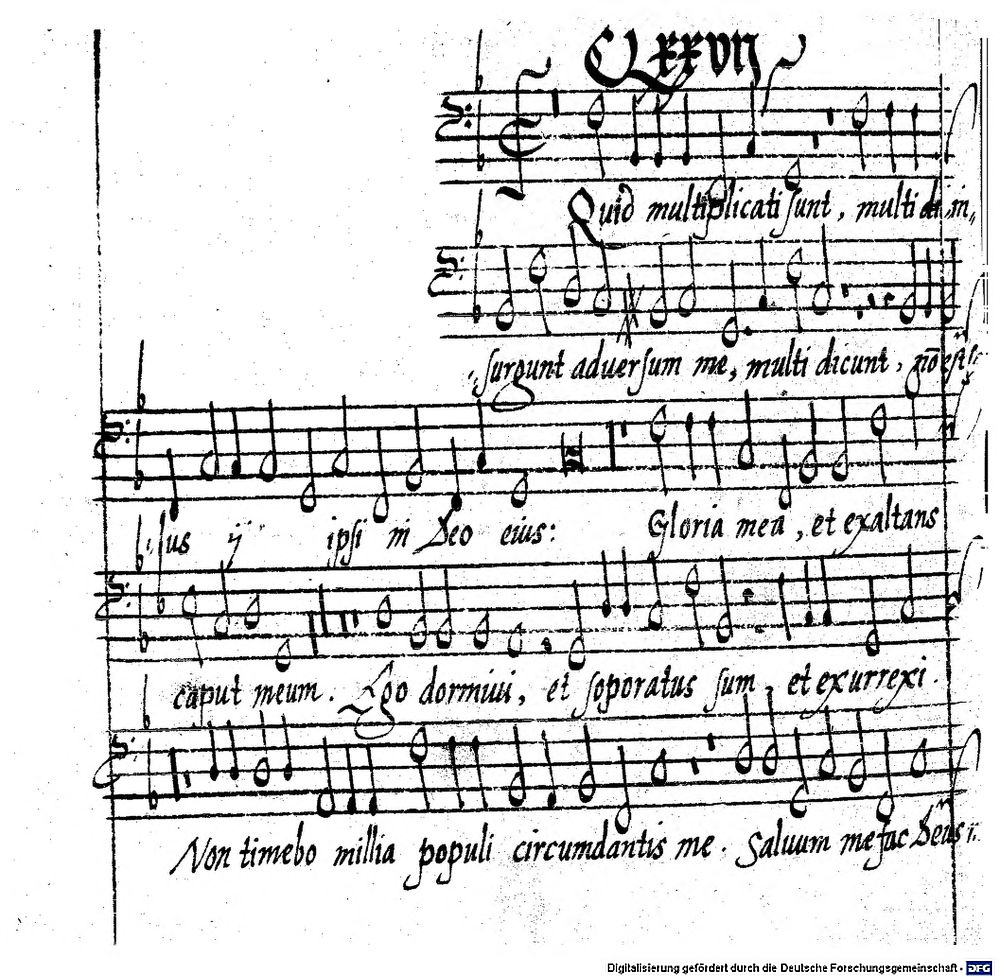 CLXXVII
Quid multiplicati sunt, multi in,,
surgunt adversum me, multi dicunt, nō est
sus ij ipsi in Deo eius: Gloria mea, et exaltans
caput meum. Ego dormiui, et soporatus sum, et exurrexi.
Non timebo millia populi circumdantis me. Saluum me fac Deus ij.
Digitalisierung gefördert durch die Deutsche Forschungsgemeinschaft - DFG